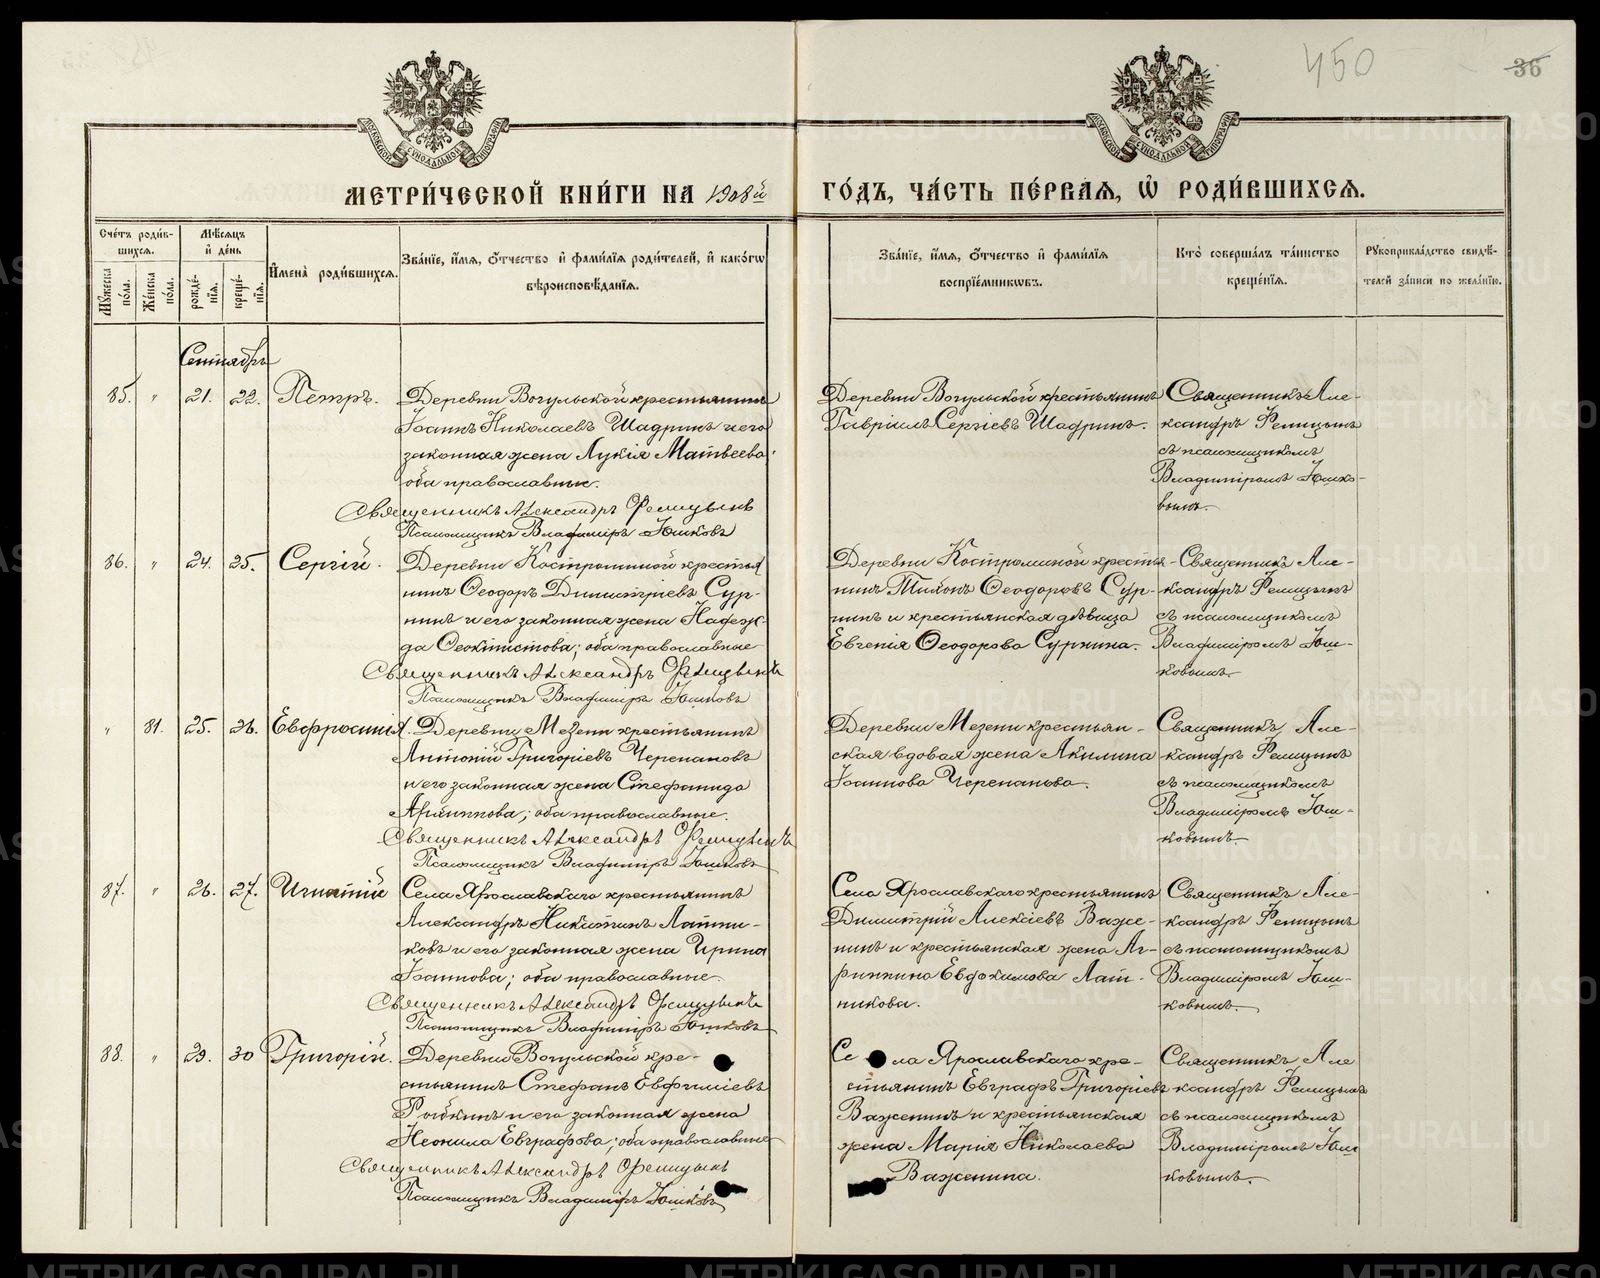 450
36
МОСКОВСКОЙ СѴНОДАЛЬНОЙ ТИПОГРАФІИ
МОСКОВСКОЙ СѴНОДАЛЬНОЙ ТИПОГРАФІИ
МЕТРИ́ЧЕСКОЙ КНИ́ГИ НА 1908й ГО́ДЪ, ЧА́СТЬ ПЕ́РВАЯ, Ѡ҆ РОДИ́ВШИХСЯ.
Сче́тъ роди́в-
шихся.
Мꙋ́жеска по́ла.
Же́нска по́ла.
Мѣ́сяцъ
и҆ де́нь
рожде́-
нїя.
креще́-
нїя.
И҆мена̀ роди́вшихся.
Зва́нїе, и҆́мя, ѻ҆́тчество и҆ фамѝлїя роди́телей, и҆ како́гѡ
вѣроисповѣ́данїя.
Зва́нїе, и҆́мя, ѻ҆́тчество и҆ фамѝлїя
воспрїе́мникѡвъ.
Кто̀ соверша́лъ та́инство
креще́нїя.
Рꙋкоприкла́дство свидѣ́-
телей за́писи по жела́нїю.
Сентябрь
85. " 21. 22. Петръ.
Деревни Вогульской крестьянинъ
Іоаннъ Николаевъ Шадринъ и его
законная жена Лукія Матвеева;
оба православные.
Священникъ Александръ Фелицынъ
Псаломщикъ Владиміръ Юшковъ
Деревни Вогульской крестьянинъ
Гавріилъ Сергіевъ Шадринъ.
Священникъ Але-
ксандръ Фелицынъ
съ псаломщикомъ
Владиміромъ Юшко-
вымъ.
86. " 24. 25. Сергій.
Деревни Костроминой крестья
нинъ Ѳеодоръ Димитріевъ Сур-
нинъ и его законная жена Надеж-
да Ѳеоктистова; оба православные
Священникъ Александръ Фелицынъ
Псаломщикъ Владиміръ Юшковъ
Деревни Костроминой крестья-
нинъ Тихонъ Ѳеодоровъ Сур-
нинъ и крестьянская дѣвица
Евгенія Ѳеодорова Сурнина.
Священникъ Але-
ксандръ Фелицынъ
съ псаломщикомъ
Владиміромъ Юш-
ковымъ.
" 81. 25. 26. Евфросинія.
Деревни Мезени крестьянинъ
Антоній Григоріевъ Черепановъ
и его законная жена Стефанида
Архиппова; оба православные.
Священникъ Александръ Фелицынъ
Псаломщикъ Владиміръ Юшковъ
Деревни Мезени крестьян-
ская вдовая жена Акилина
Іоаннова Черепанова.
Священникъ Але-
ксандръ Фелицынъ
съ псаломщикомъ
Владиміромъ Юш-
ковымъ.
87. " 26. 27. Игнатій
Села Ярославскаго крестьянинъ
Александръ Никитинъ Латни-
ковъ и его законная жена Ирина
Іоаннова; оба православные.
Священникъ Александръ Фелицынъ
Псаломщикъ Владиміръ Юшковъ
Села Ярославскаго крестьянинъ
Димитрій Алексіевъ Важе-
нинъ и крестьянская жена Аг-
риппина Евдокимова Лат-
никова.
Священникъ Але-
ксандръ Фелицынъ
съ псаломщикомъ
Владиміромъ Юш-
ковымъ.
88. " 29. 30 Григорій.
Деревни Вогульской кре-
стьянинъ Стефанъ Евфиміевъ
и его законная жена
Неонила Евграфова; оба православные
Священникъ Александръ Фелицынъ
Псаломщикъ Владиміръ Юшковъ
Се ла Ярославскаго кре-
стьянинъ Евграфъ Григоріевъ
Важенинъ и крестьянская
жена Марія Николаева
Важенина.
Священникъ Але
ксандръ Фелицынъ
съ псаломщикомъ
Владиміромъ Юш
ковымъ.
METRIKI.GASO-URAL.RU